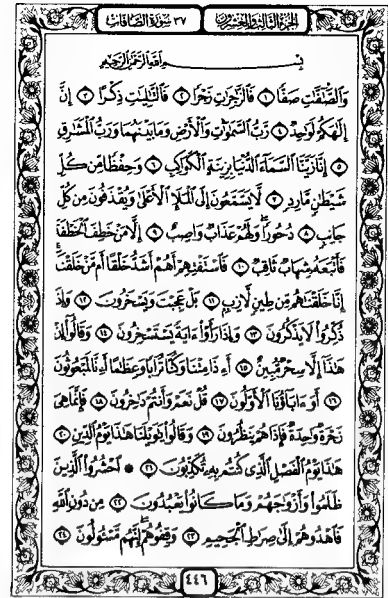 الجزء الثالث والعشرون
٣٧ سورة الصافات
بِسْمِ اللَّهِ الرَّحْمَٰنِ الرَّحِيمِ
وَالصَّٰٓفَّٰتِ صَفًّا ١ فَالزَّٰجِرَٰتِ زَجْرًا ٢ فَالتَّٰلِيَٰتِ ذِكْرًا ٣ إِنَّ
إِلَٰهَكُمْ لَوَٰحِدٌ ٤ رَّبُّ السَّمَٰوَٰتِ وَالْأَرْضِ وَمَا بَيْنَهُمَا وَرَبُّ الْمَشَٰرِقِ
٥ إِنَّا زَيَّنَّا السَّمَآءَ الدُّنْيَا بِزِينَةٍ الْكَوَاكِبِ ٦ وَحِفْظًا مِّن كُلِّ
شَيْطَٰنٍ مَّارِدٍ ٧ لَّا يَسَّمَّعُونَ إِلَى الْمَلَإِ الْأَعْلَىٰ وَيُقْذَفُونَ مِن كُلِّ
جَانِبٍ ٨ دُحُورًا وَلَهُمْ عَذَابٌ وَاصِبٌ ٩ إِلَّا مَنْ خَطِفَ الْخَطْفَةَ
فَأَتْبَعَهُ شِهَابٌ ثَاقِبٌ ١٠ فَاسْتَفْتِهِمْ أَهُمْ أَشَدُّ خَلْقًا أَم مَّنْ خَلَقْنَآ
إِنَّا خَلَقْنَٰهُم مِّن طِينٍ لَّازِبٍ ١١ بَلْ عَجِبْتَ وَيَسْخَرُونَ ١٢ وَإِذَا
ذُكِّرُوا لَا يَذْكُرُونَ ١٣ وَإِذَا رَأَوْا ءَايَةً يَسْتَسْخِرُونَ ١٤ وَقَالُوٓا إِنْ
هَٰذَآ إِلَّا سِحْرٌ مُّبِينٌ ١٥ أَءِذَا مِتْنَا وَكُنَّا تُرَابًا وَعِظَٰمًا أَءِنَّا لَمَبْعُوثُونَ
١٦ أَوَءَابَآؤُنَا الْأَوَّلُونَ ١٧ قُلْ نَعَمْ وَأَنتُمْ دَٰخِرُونَ ١٨ فَإِنَّمَا هِيَ
زَجْرَةٌ وَٰحِدَةٌ فَإِذَا هُمْ يَنظُرُونَ ١٩ وَقَالُوا يَٰوَيْلَنَا هَٰذَا يَوْمُ الدِّينِ ٢٠
هَٰذَا يَوْمُ الْفَصْلِ الَّذِي كُنتُم بِهِ تُكَذِّبُونَ ٢١ ۞ احْشُرُوا الَّذِينَ
ظَلَمُوا وَأَزْوَٰجَهُمْ وَمَا كَانُوا يَعْبُدُونَ ٢٢ مِن دُونِ اللَّهِ
فَاهْدُوهُمْ إِلَىٰ صِرَٰطِ الْجَحِيمِ ٢٣ وَقِفُوهُمْ إِنَّهُم مَّسْئُولُونَ ٢٤
٤٤٦